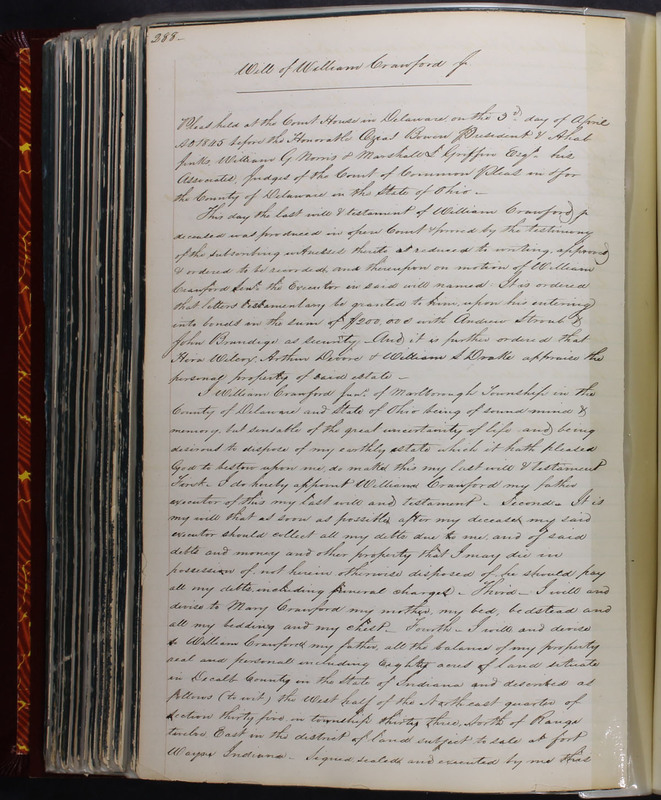 388-
Will of William Crawford Jr
Pleas held at the Court House in Delaware on the 3rd day of April
AD 1845 before the Honorable Ozias Bowen President & Ahab
Jinks, William G Norris & Marshall L Griffin Esqrs his
Associates, Judges of the Court of Common Pleas in & for
the County of Delaware in the State of Ohio -
This day the last will & testament of William Crawford, Jr
deceased was produced in open Court & proved by the testimony
of the subscribing witnesses thereto as reduced to writing, approved
& ordered to be recorded, and thereupon on motion of William
Crawford Senr. the Executor in said will named It is ordered
that letters testamentary be granted to him, upon his entering
into bonds in the sum of $200,00$ with Andrew Stroub &
John Brundige as security - And it is further ordered that
Hira Wilcox Arthur Devore & William S Drake appraise the
personal property of said estate -
I William Crawford Junr. of Marlborough Township in the
County of Delaware and State of Ohio being of sound mind &
memory, but sensable of the great uncertainty of life, and being
desirous to dispose of my earthly estate which it hath pleased
God to bestow upon me, do make this my last will & testament
First - I do hereby appoint William Crawford my father
executor of this my last will and testament - Second - It is
my will that as soon as possible after my decease, my said
executor should collect all my debts due to me, and of said
debts and money and other property that I may die in
possession of not herein otherwise disposed of he should pay
all my debts including funeral charges - Third - I will and
devise to Mary Crawford my mother, my bed, bedstead and
all my bedding and my chest - Fourth - I will and devise
to William Crawford my father, all the balance of my property
real and personal including Eaghty acres of land situate
in Decalb County in the State of Indiana and described as
follows (to wit) the West half of the North east quarter of
section thirty five in township thirty three, North of Range
twelve East in the district of land subject to sale at fort
Wayne Indiana - Signed sealed and executed by me this